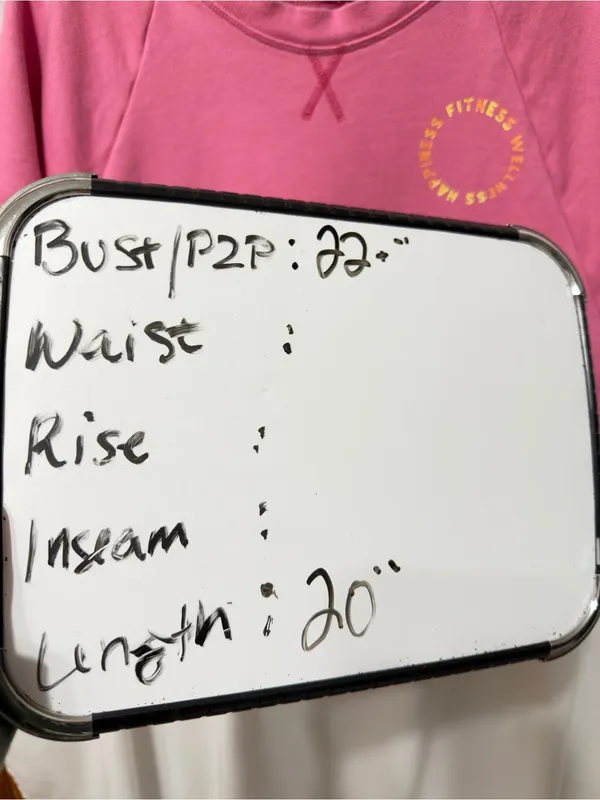 FITNESS WELLNESS HAPPINESS
Bust/P2P: 22"
Waist :
Rise :
Inseam :
Length: 20"